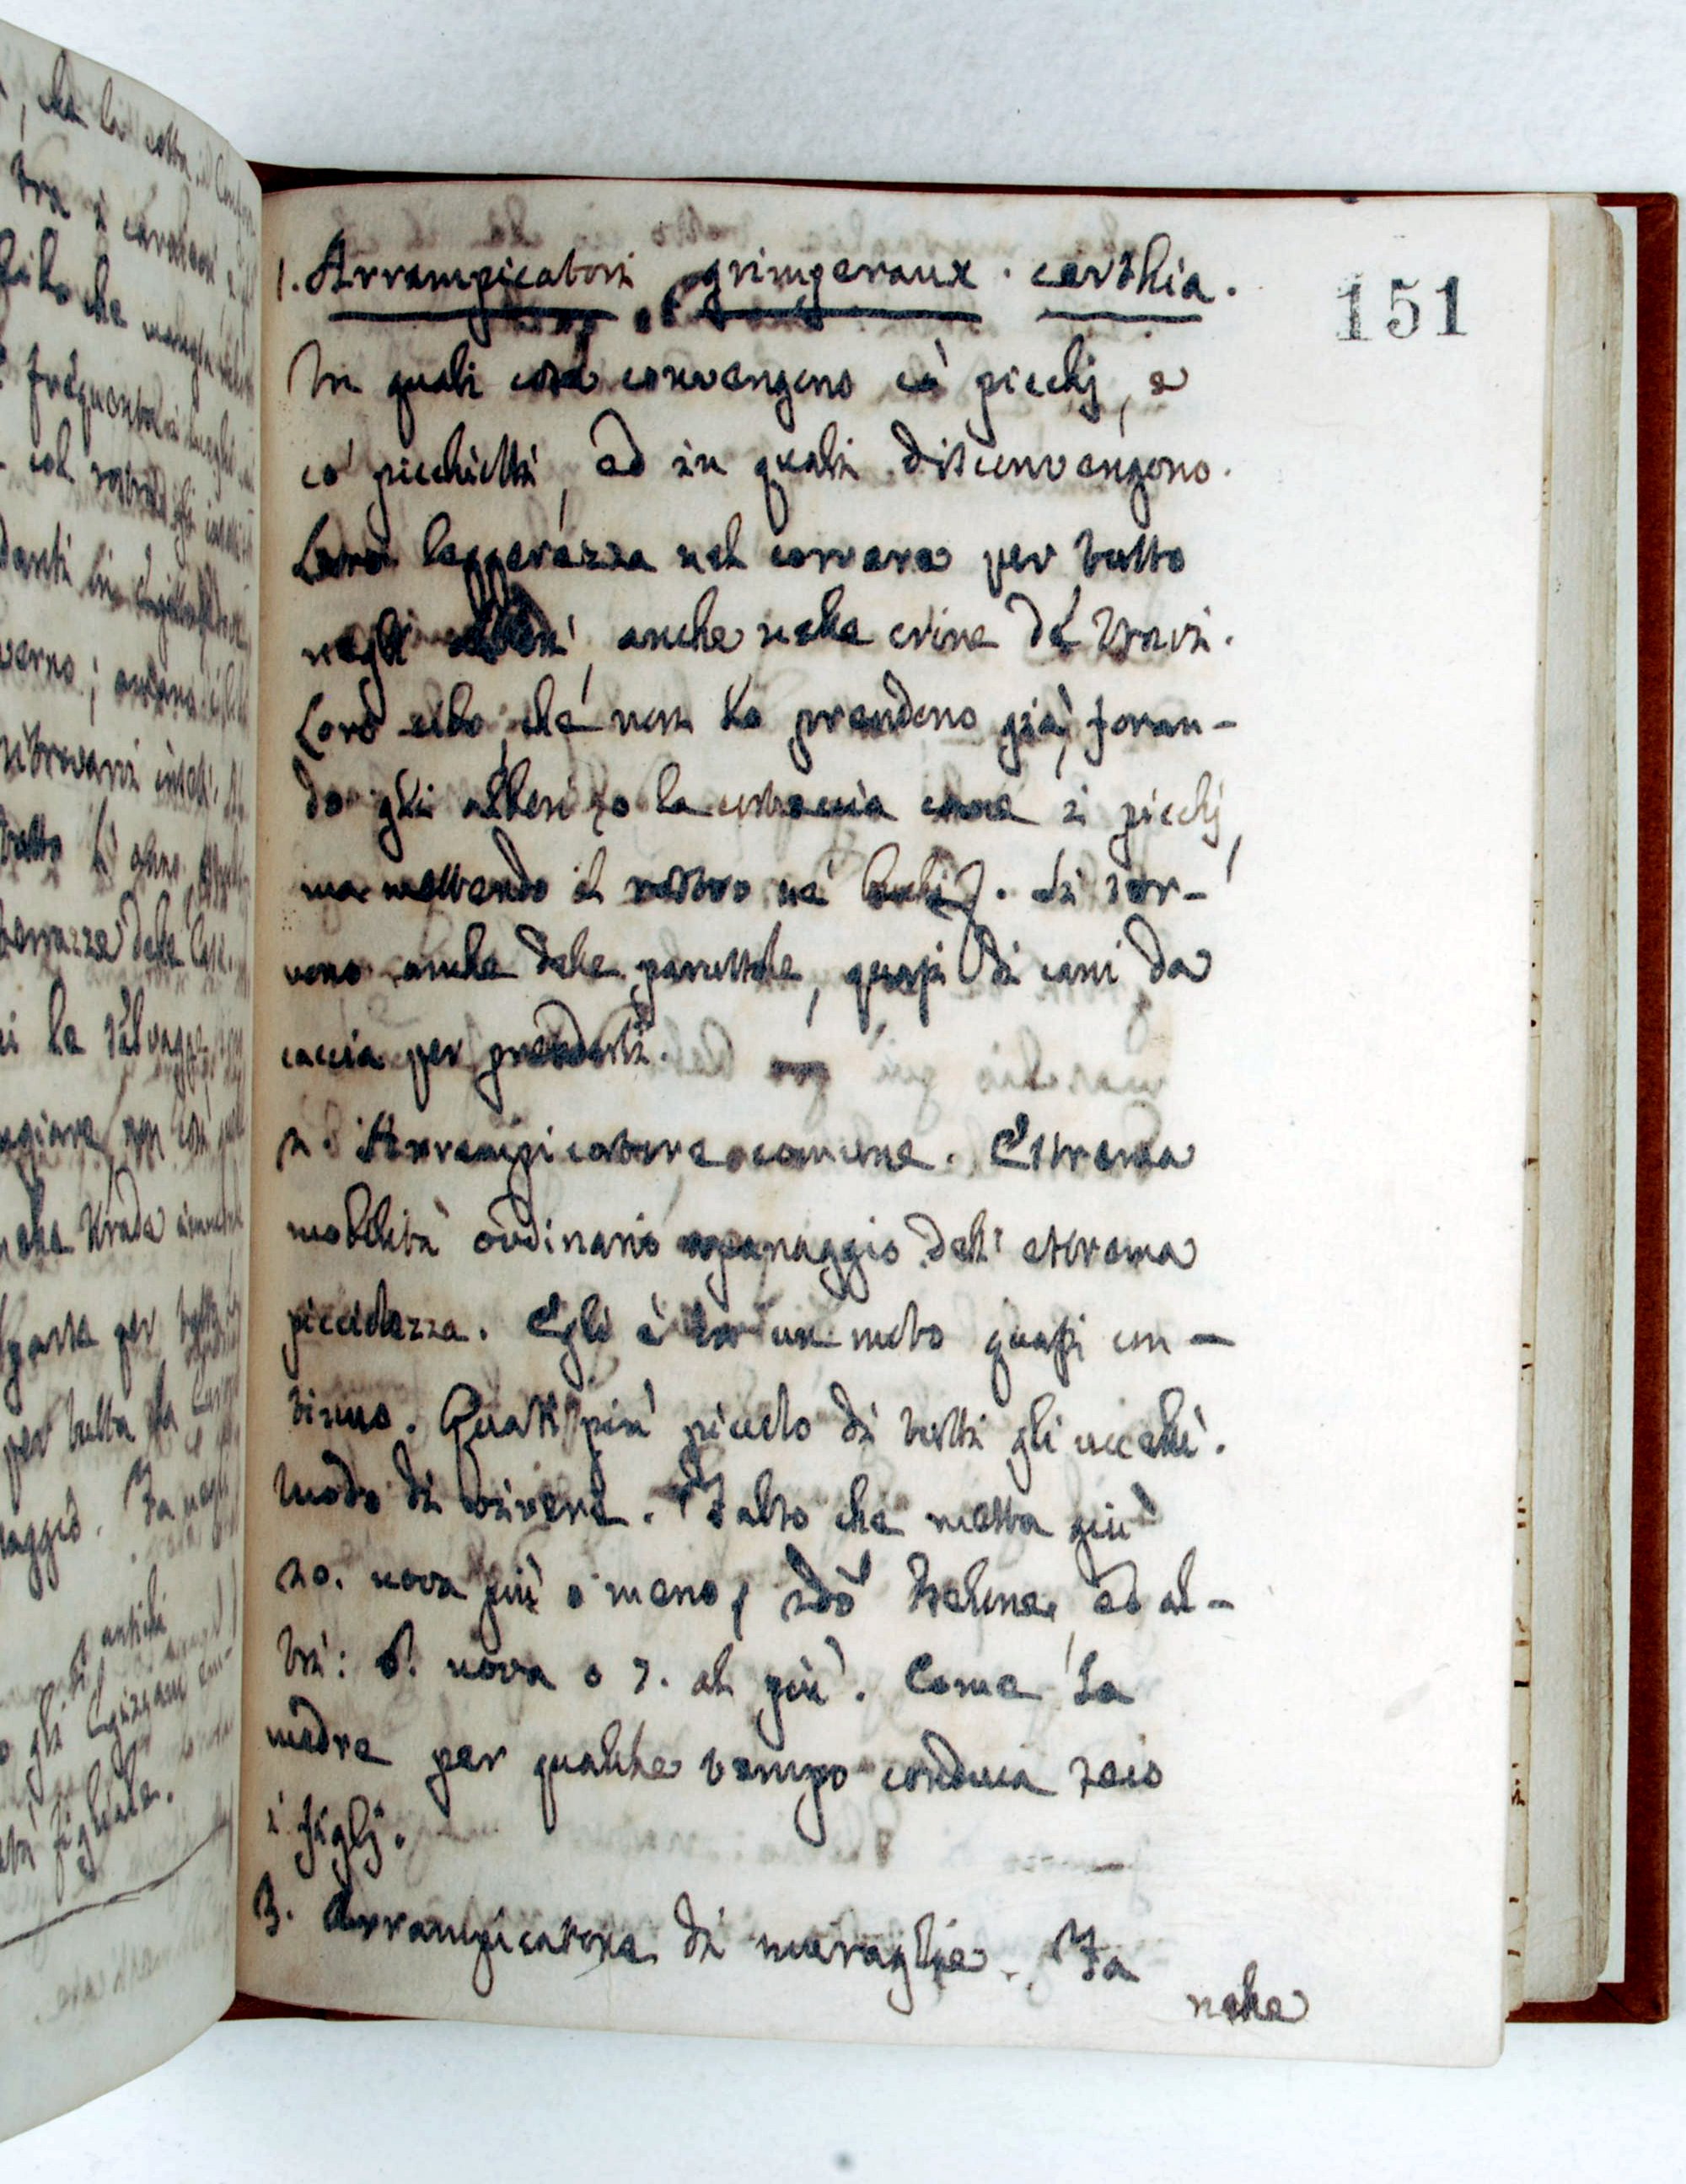 1. Arrampicatori grimperaux. certhia.
151
In quali cose convengono co' picchj, e
co' picchietti, ed in quali disconvengono.
Loro leggerezza nel correre per tutto
negli alberi, anche nelle crine de' travi.
Loro cibo, che non lo prendono già, foran-
do gli alberi, o la corteccia come i picchj,
ma mettendo il rostro ne' buchi. Si ser-
vono anche delle parussole, quasi di cani da
caccia per prenderli.
2. Arrampicatore comune. Estrema
mobilità ordinario apanaggio dell' estrema
picciolezza. Egli è in un moto quasi con-
tinuo. Quasi più piccolo di tutti gli uccelli.
Modo di vivere. Falso che metta più
20. uova più o meno, ma ed al-
tri: 5. uova o 7. al più. Come la
madre per qualche tempo conduca seco
i figlj.
3. Arrampicatore di muraglie. Fa
nelle